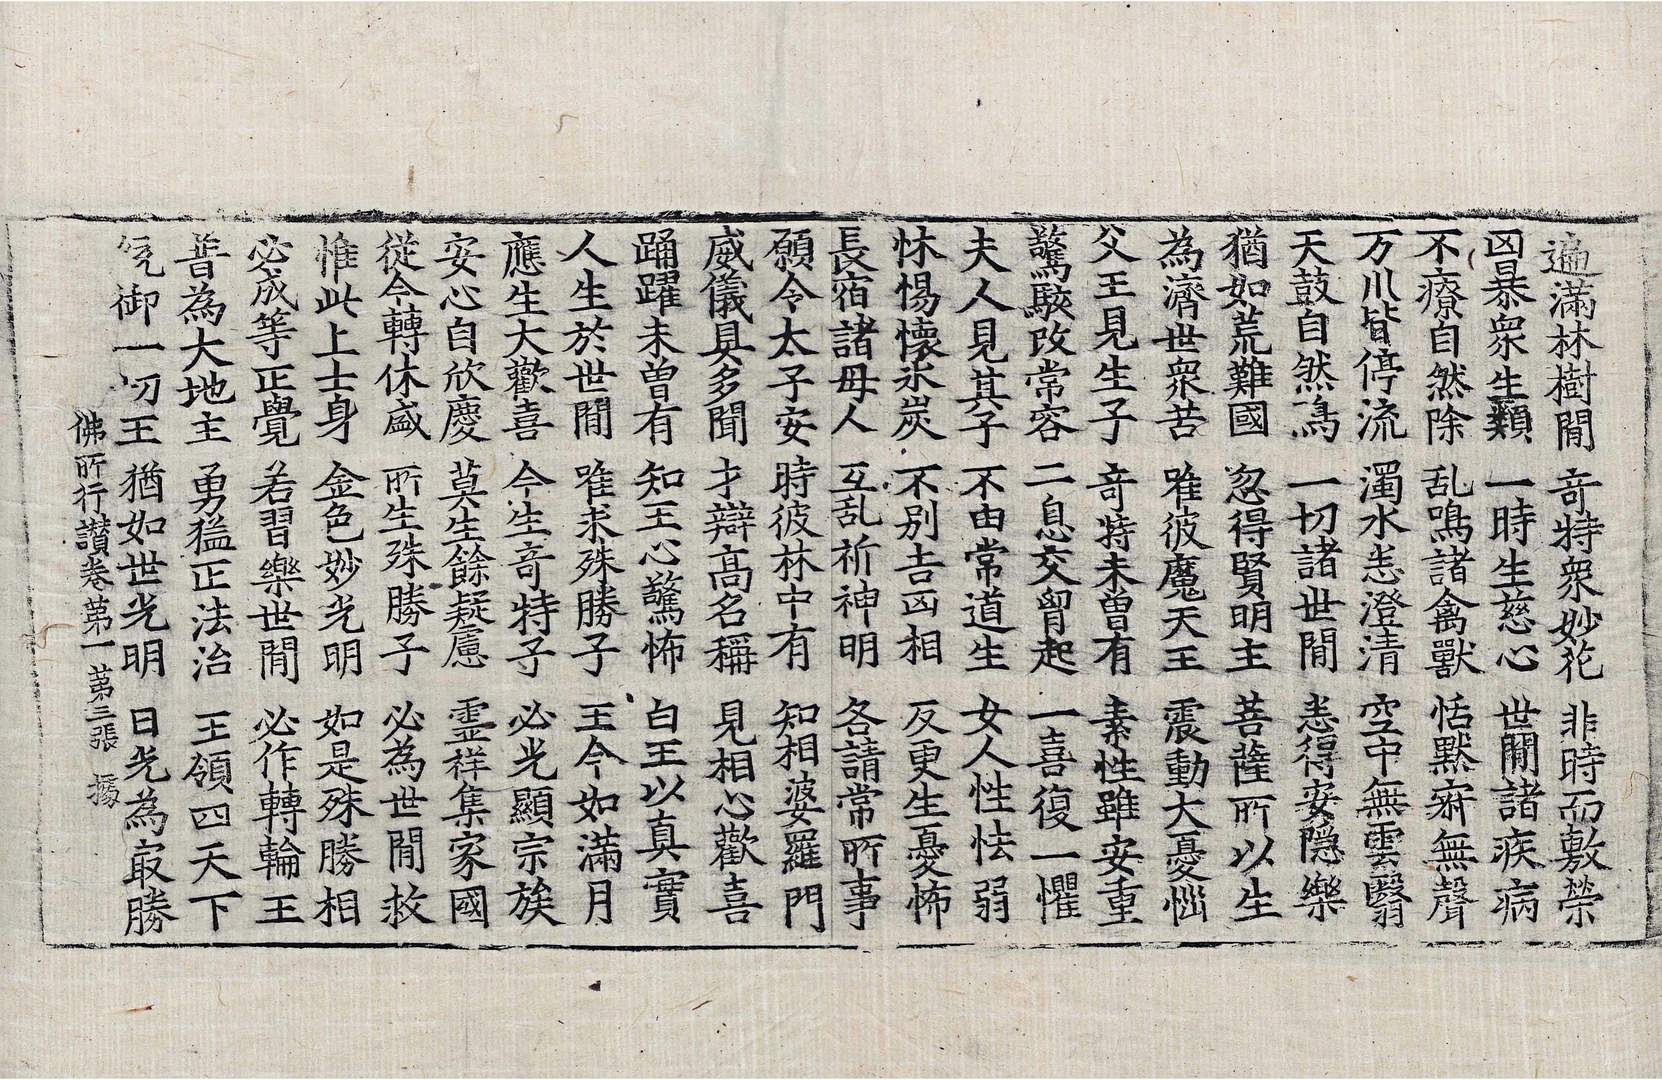 遍滿林樹閒 奇特衆妙花 非時而敷榮
凶暴衆生類 一時生慈心 世閒諸疾病
不療自然除 乱鳴諸禽獸 恬默寂無聲
万川皆停流 濁水悉澄清 空中無雲翳
天鼓自然鳴 一切諸世閒 悉得安隱樂
猶如荒難國 忽得賢明主 菩薩所以生
為濟世衆苦 唯彼魔天王 震動大憂惱
父王見生子 奇特未曽有 素性雖安重
驚駭改常容 二息交胷起 一喜復一懼
夫人見其子 不由常道生 女人性怯弱
怵惕懷氷炭 不別吉凶相 反更生憂怖
長宿諸母人 互乱祈神明 各請常所事
願令太子安 時彼林中有 知相婆羅門
威儀具多聞 才辯高名稱 見相心歡喜
踊躍未曽有 知王心驚怖 白王以真實
人生於世閒 唯求殊勝子 王今如滿月
應生大歡喜 今生奇特子 必光顯宗族
安心自欣慶 莫生餘疑慮 靈祥集家國
從今轉休盛 所生殊勝子 必為世閒救
惟此上士身 金色妙光明 如是殊勝相
必成等正覺 若習樂世閒 必作轉輪王
普為大地主 勇猛正法治 王領四天下
統御一切王 猶如世光明 日光為冣勝
佛所行讃卷第一 第三張 據